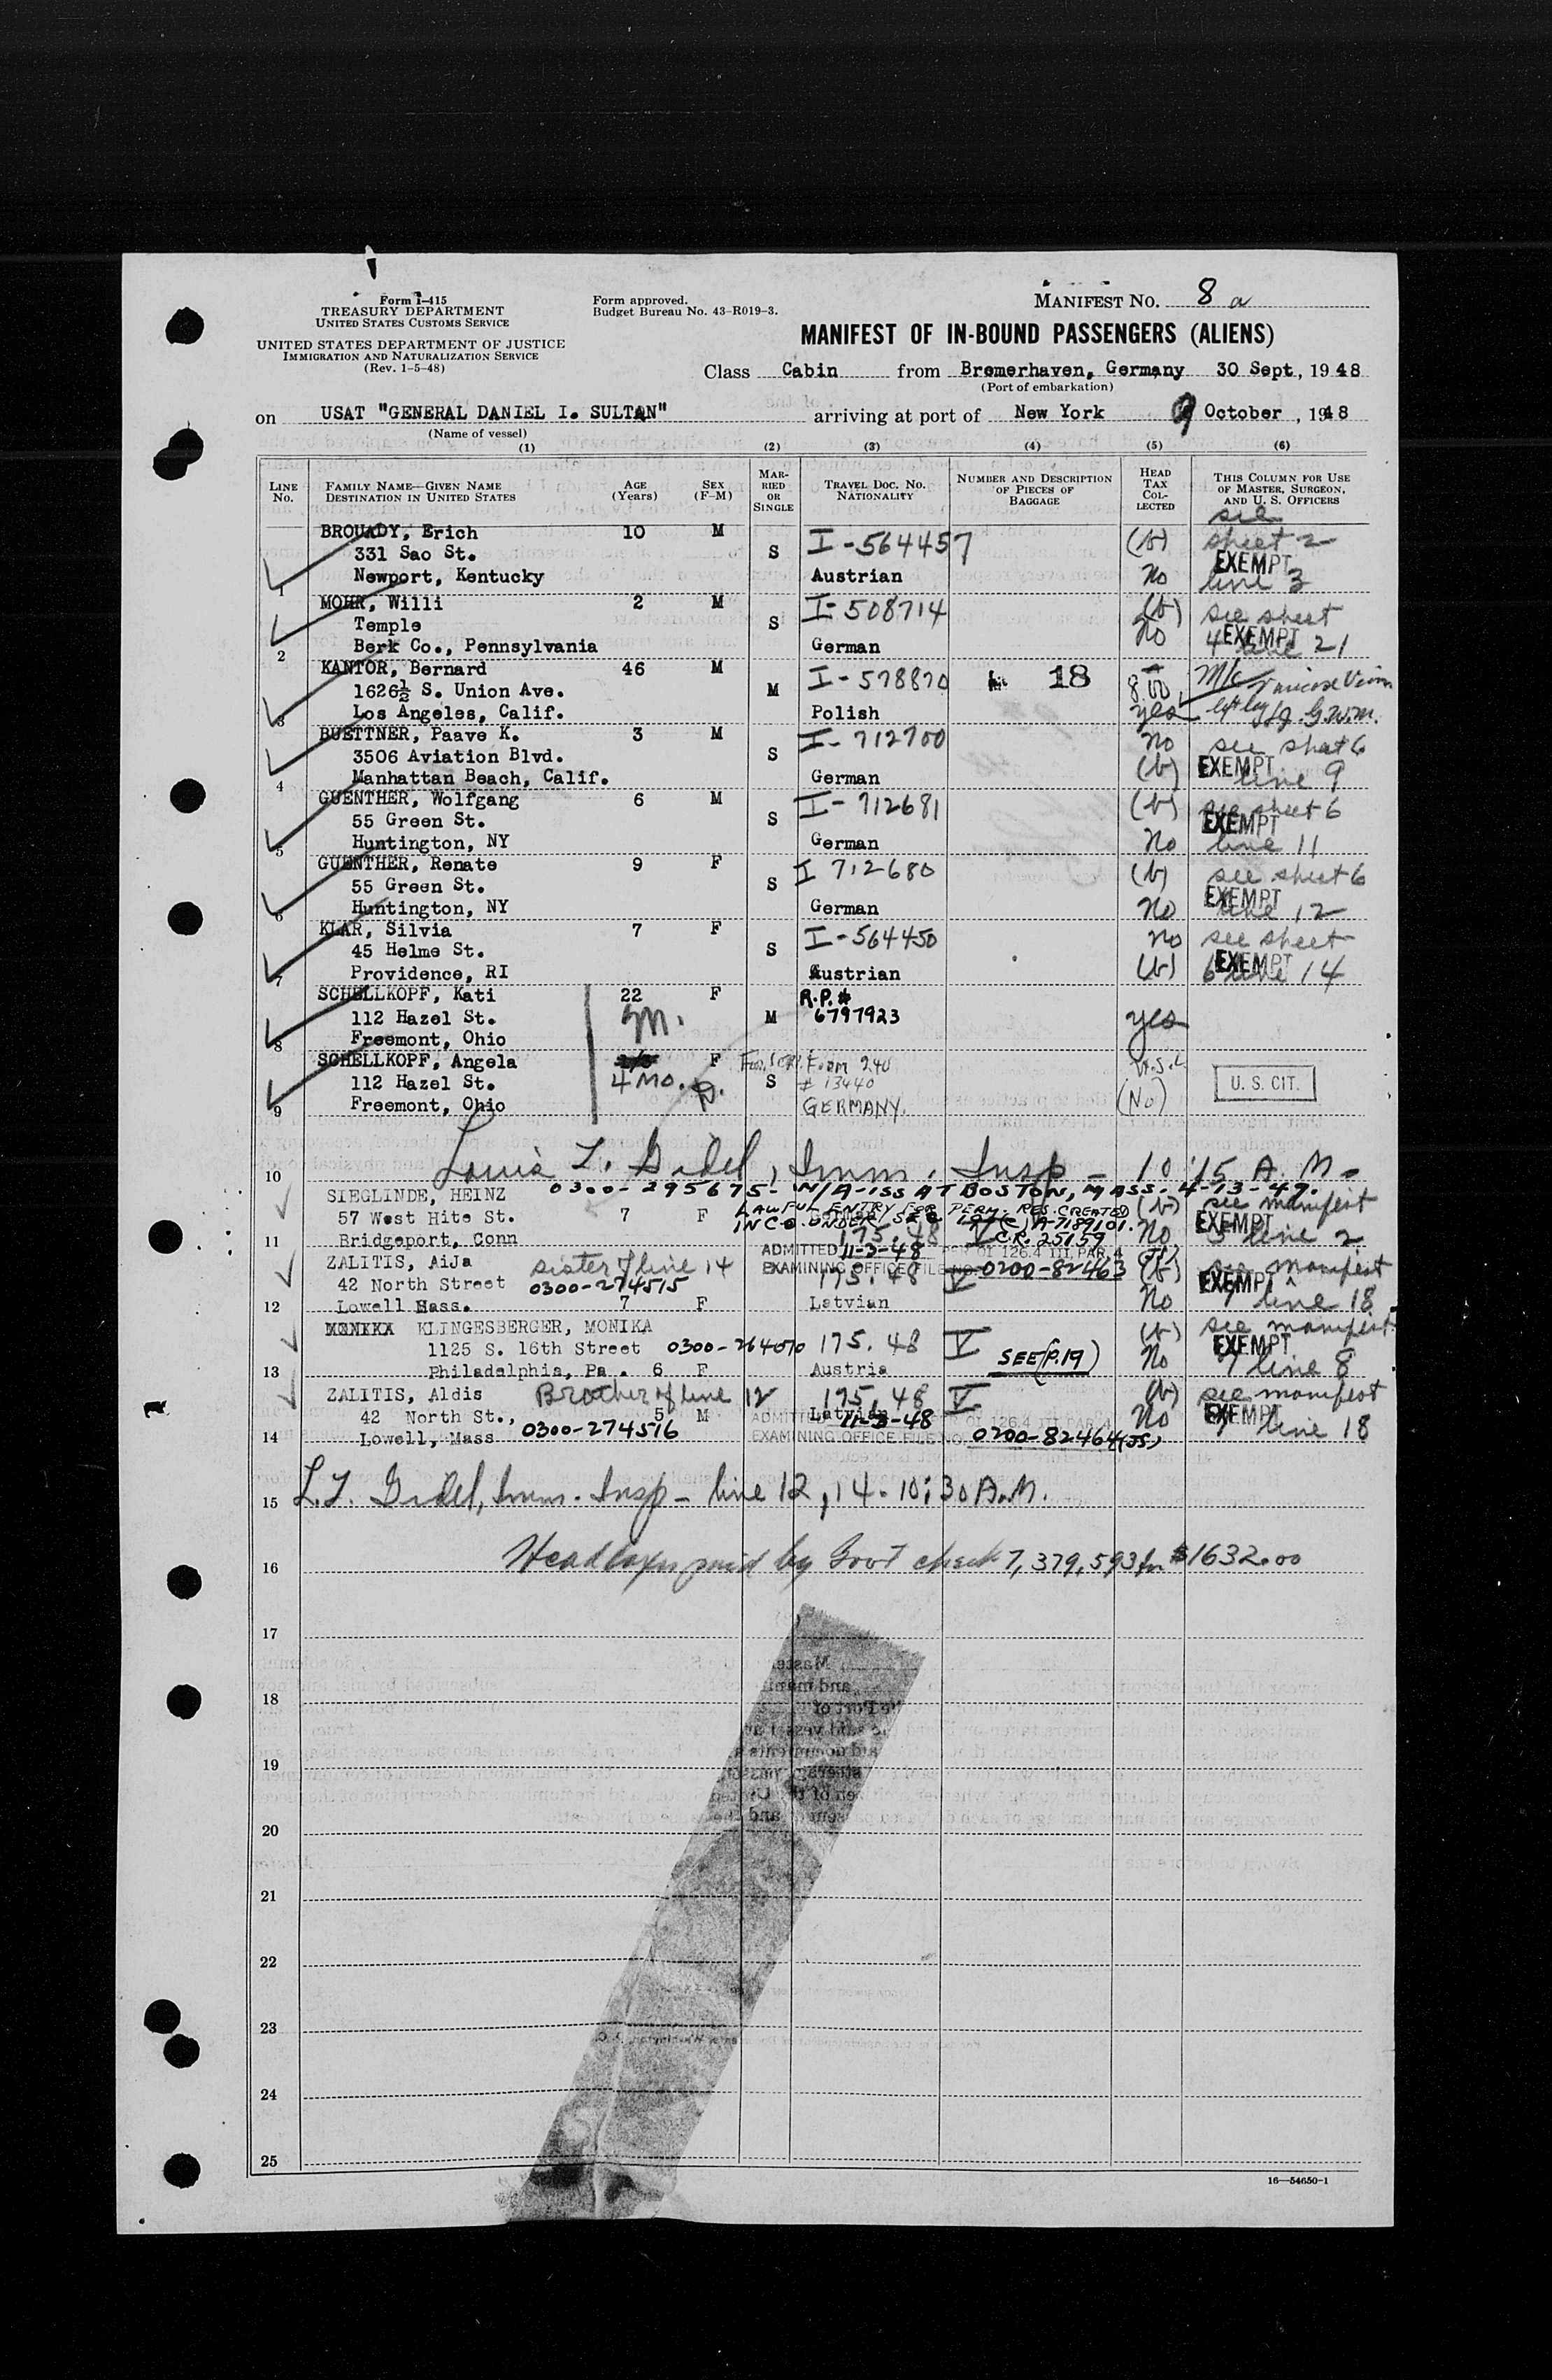 Form I-415
TREASURY DEPARTMENT
UNITED STATES CUSTOMS SERVICE
UNITED STATES DEPARTMENT OF JUSTICE
IMMIGRATION AND NATURALIZATION SERVICE
(Rev. 1-5-48)
Form approved.
Budget Bureau No. 43-R019-3.
MANIFEST NO. 8 a
MANIFEST OF IN-BOUND PASSENGERS (ALIENS)
Class Cabin from Bremerhaven, Germany 30 Sept., 1948
(Port of embarkation)
on USAT "GENERAL DANIEL I. SULTAN" arriving at port of New York 9 October, 1948
(Name of vessel)
(1) (2) (3) (4) (5) (6)
LINE No. FAMILY NAME—GIVEN NAME DESTINATION IN UNITED STATES AGE (Years) SEX (F-M) MARRIED OR SINGLE TRAVEL DOC. NO. NATIONALITY NUMBER AND DESCRIPTION OF PIECES OF BAGGAGE HEAD TAX COLLECTED THIS COLUMN FOR USE OF MASTER, SURGEON, AND U. S. OFFICERS
BROUADY, Erich 10 M S I-564457 (b) see sheet 2
331 Sao St. EXEMPT
1 Newport, Kentucky Austrian No line 3
MOHR, Willi 2 M S I-508714 (b) see sheet
Temple No EXEMPT
2 Berk Co., Pennsylvania German 4 line 21
KANTOR, Bernard 46 M M I-578870 18 8.00 M/c Varicose Veins
1626½ S. Union Ave.
3 Los Angeles, Calif. Polish yes G.W.M.
BUETTNER, Paave K. 3 M S I-712700 No see sheet 6
3506 Aviation Blvd. EXEMPT
4 Manhattan Beach, Calif. German (b) line 9
GUENTHER, Wolfgang 6 M S I-712681 (b) see sheet 6
55 Green St. EXEMPT
5 Huntington, NY German No line 11
GUENTHER, Renate 9 F S I 712680 (b) see sheet 6
55 Green St. EXEMPT
6 Huntington, NY German No line 12
KLAR, Silvia 7 F S I-564450 No see sheet
45 Helme St. EXEMPT
7 Providence, RI Austrian (b) 6 line 14
SCHELLKOPF, Kati 22 F R.P.#
112 Hazel St. M 6797923 yes
8 Freemont, Ohio
SCHELLKOPF, Angela F Form 240
112 Hazel St. 4 Mo. S # 13440 U. S. CIT.
9 Freemont, Ohio GERMANY. (No)
10 Louis L. Gidel, Imm. Insp - 10:15 A.M.
SIEGLINDE, HEINZ 0300-295675- N/A-ISS AT BOSTON, MASS. 4-13-49.
57 West Hite St. 7 F LAWFUL ENTRY FOR PERM. RES. CREATED (b) see manifest
IN C.O. UNDER A-7189101. No EXEMPT
11 Bridgeport, Conn 175.48 V C.R. 25159 line 2
ZALITIS, AiJa sister of line 14 ADMITTED 11-3-48 126.4 III PAR. 4
42 North Street 0300-274515 EXAMINING OFFICE FILE NO. 0200-82463 (b) see manifest
175.48 V EXEMPT
12 Lowell Mass. 7 F Latvian No 7 line 18
KLINGESBERGER, MONIKA (b) see manifest
1125 S. 16th Street 0300-264070 175.48 V SEE (P.19) EXEMPT
13 Philadelphia, Pa. 6 F Austria No 7 line 8
ZALITIS, Aldis Brother of line 12 175.48 V (b) see manifest
42 North St., 5 M Latvian ADMITTED 11-3-48 126.4 III PAR. 4 No EXEMPT
14 Lowell, Mass 0300-274516 EXAMINING OFFICE FILE NO. 0200-82464 (JS) 7 line 18
15 L.L. Gidel, Imm. Insp - line 12, 14 - 10:30 A.M.
16 Head taxes paid by Govt check 7,379,593 for $1632.00
17
18
19
20
21
22
23
24
25
16—54650-1